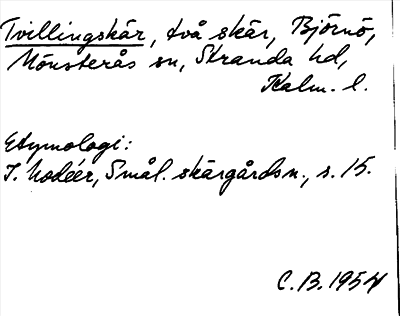 Tvillingskär, två skär, Björnö,
Mönsterås sn, Stranda hd,
Kalm. l.
Etymologi:
I. Modéer, Smål. skärgårdsn., s. 15.
C. B. 1954